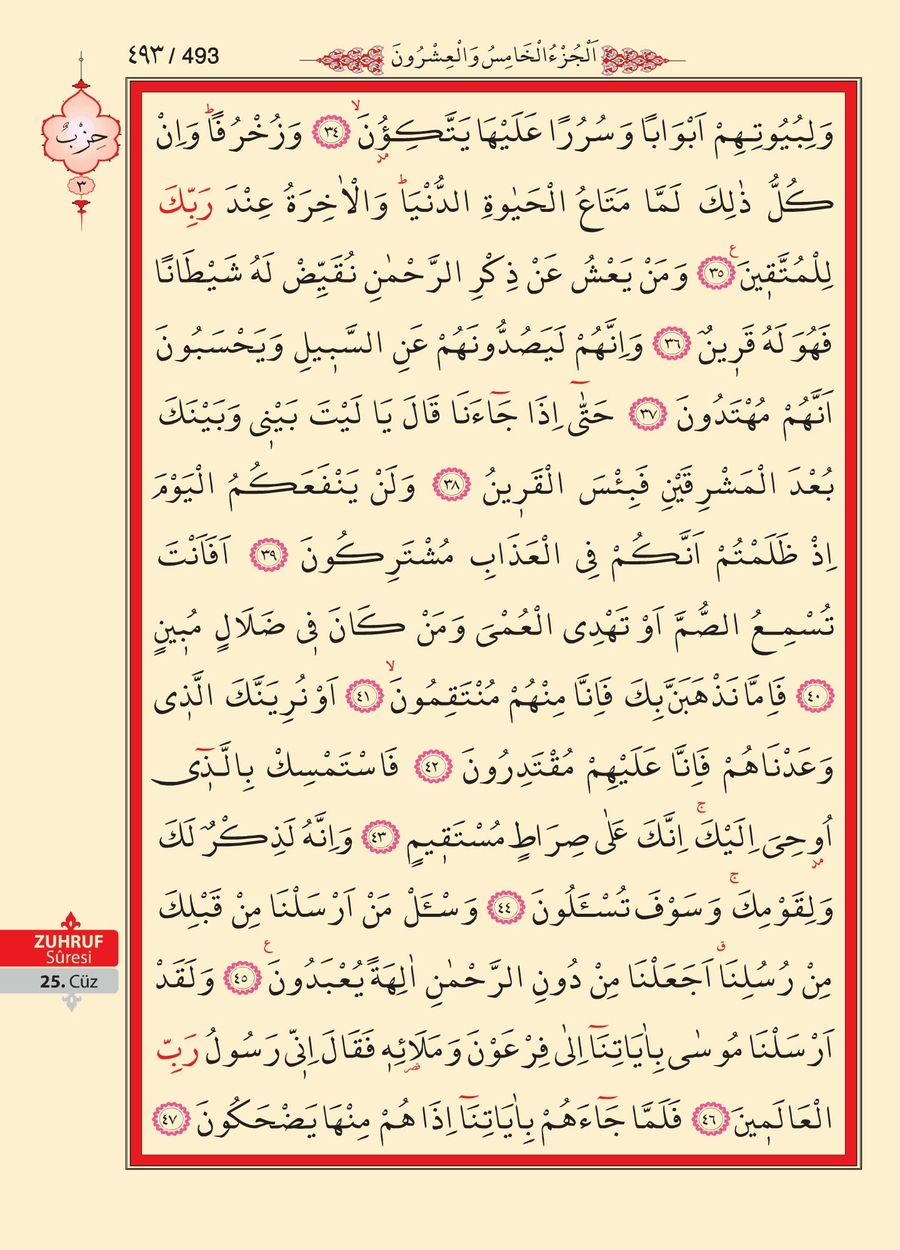 ٤٩٣ / 493
اَلْجُزْءُ الْخَامِسُ وَالْعِشْرُونَ
حِزْبٌ
٣
وَلِبُيُوتِهِمْ اَبْوَابًا وَسُرُرًا عَلَيْهَا يَتَّكِؤُ۫نَۙ ﴿٣٤﴾ وَزُخْرُفًاۜ وَاِنْ
كُلُّ ذٰلِكَ لَمَّا مَتَاعُ الْحَيٰوةِ الدُّنْيَاۜ وَالْاٰخِرَةُ عِنْدَ رَبِّكَ
لِلْمُتَّق۪ينَ۟ ﴿٣٥﴾ وَمَنْ يَعْشُ عَنْ ذِكْرِ الرَّحْمٰنِ نُقَيِّضْ لَهُ شَيْطَانًا
فَهُوَ لَهُ قَر۪ينٌ ﴿٣٦﴾ وَاِنَّهُمْ لَيَصُدُّونَهُمْ عَنِ السَّب۪يلِ وَيَحْسَبُونَ
اَنَّهُمْ مُهْتَدُونَ ﴿٣٧﴾ حَتّٰٓى اِذَا جَٓاءَنَا قَالَ يَا لَيْتَ بَيْن۪ي وَبَيْنَكَ
بُعْدَ الْمَشْرِقَيْنِ فَبِئْسَ الْقَر۪ينُ ﴿٣٨﴾ وَلَنْ يَنْفَعَكُمُ الْيَوْمَ
اِذْ ظَلَمْتُمْ اَنَّكُمْ فِي الْعَذَابِ مُشْتَرِكُونَ ﴿٣٩﴾ اَفَاَنْتَ
تُسْمِعُ الصُّمَّ اَوْ تَهْدِي الْعُمْيَ وَمَنْ كَانَ ف۪ي ضَلَالٍ مُب۪ينٍ
﴿٤٠﴾ فَاِمَّا نَذْهَبَنَّ بِكَ فَاِنَّا مِنْهُمْ مُنْتَقِمُونَۙ ﴿٤١﴾ اَوْ نُرِيَنَّكَ الَّذ۪ي
وَعَدْنَاهُمْ فَاِنَّا عَلَيْهِمْ مُقْتَدِرُونَ ﴿٤٢﴾ فَاسْتَمْسِكْ بِالَّذ۪ٓي
اُو۫حِيَ اِلَيْكَۚ اِنَّكَ عَلٰى صِرَاطٍ مُسْتَق۪يمٍ ﴿٤٣﴾ وَاِنَّهُ لَذِكْرٌ لَكَ
وَلِقَوْمِكَۚ وَسَوْفَ تُسْـَٔلُونَ ﴿٤٤﴾ وَسْـَٔلْ مَنْ اَرْسَلْنَا مِنْ قَبْلِكَ
مِنْ رُسُلِنَاۗ اَجَعَلْنَا مِنْ دُونِ الرَّحْمٰنِ اٰلِهَةً يُعْبَدُونَ۟ ﴿٤٥﴾ وَلَقَدْ
اَرْسَلْنَا مُوسٰى بِاٰيَاتِنَٓا اِلٰى فِرْعَوْنَ وَمَلَا۬ئِه۪ فَقَالَ اِنّ۪ي رَسُولُ رَبِّ
الْعَالَم۪ينَ ﴿٤٦﴾ فَلَمَّا جَٓاءَهُمْ بِاٰيَاتِنَٓا اِذَا هُمْ مِنْهَا يَضْحَكُونَ ﴿٤٧﴾
ZUHRUF
Sûresi
25. Cüz